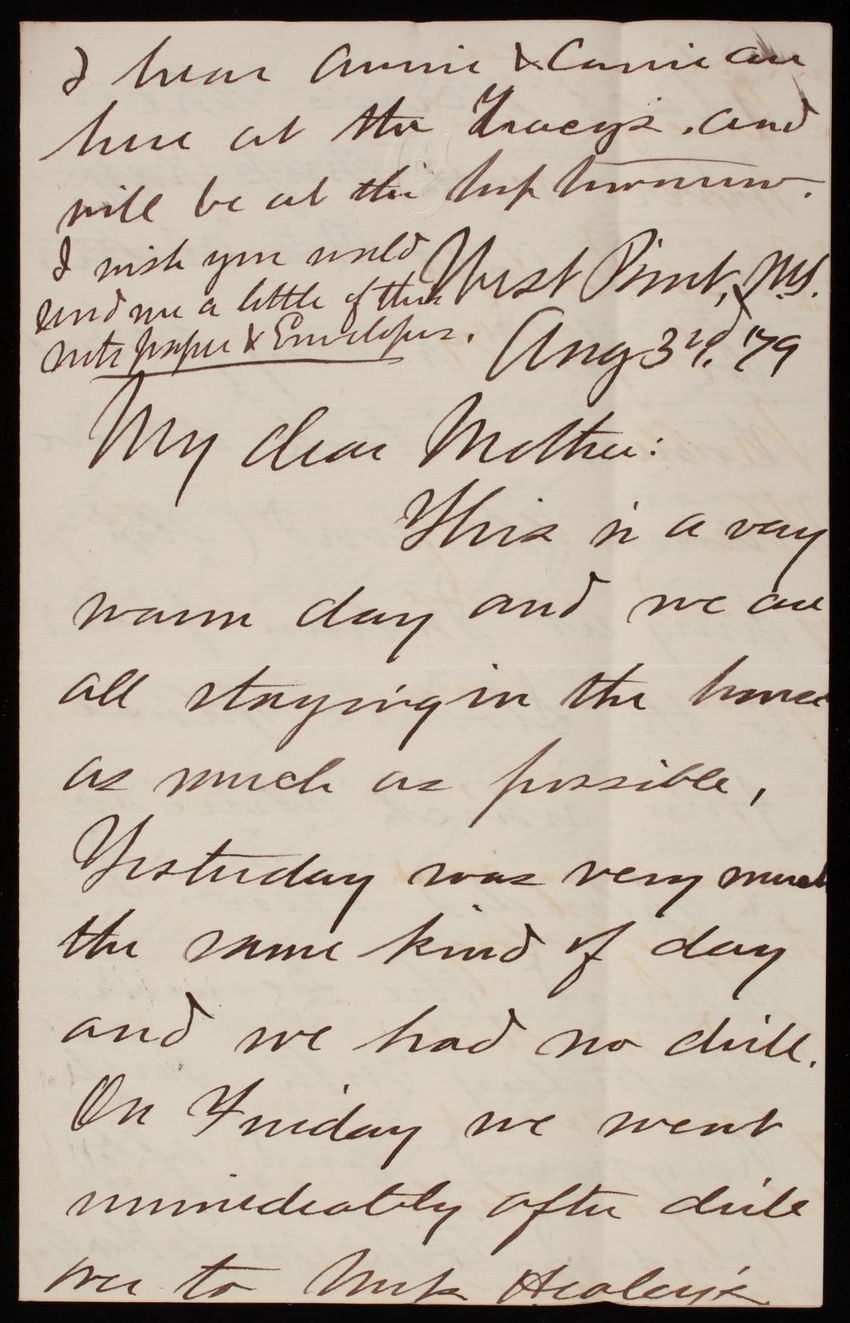 I hear Annie & Carrie are
here at the Tracey's. and
will be at the hop tomorrow.
I wish you would
send me a little of this
note paper & Envelopes.
West Point, N.Y.
Aug 3rd, '79
My dear Mother:
This is a very
warm day and we are
all staying in the house
as much as possible,
Yesterday was very much
the same kind of day
and we had no drill.
On Friday we went
immediately after drill
over to Healey's